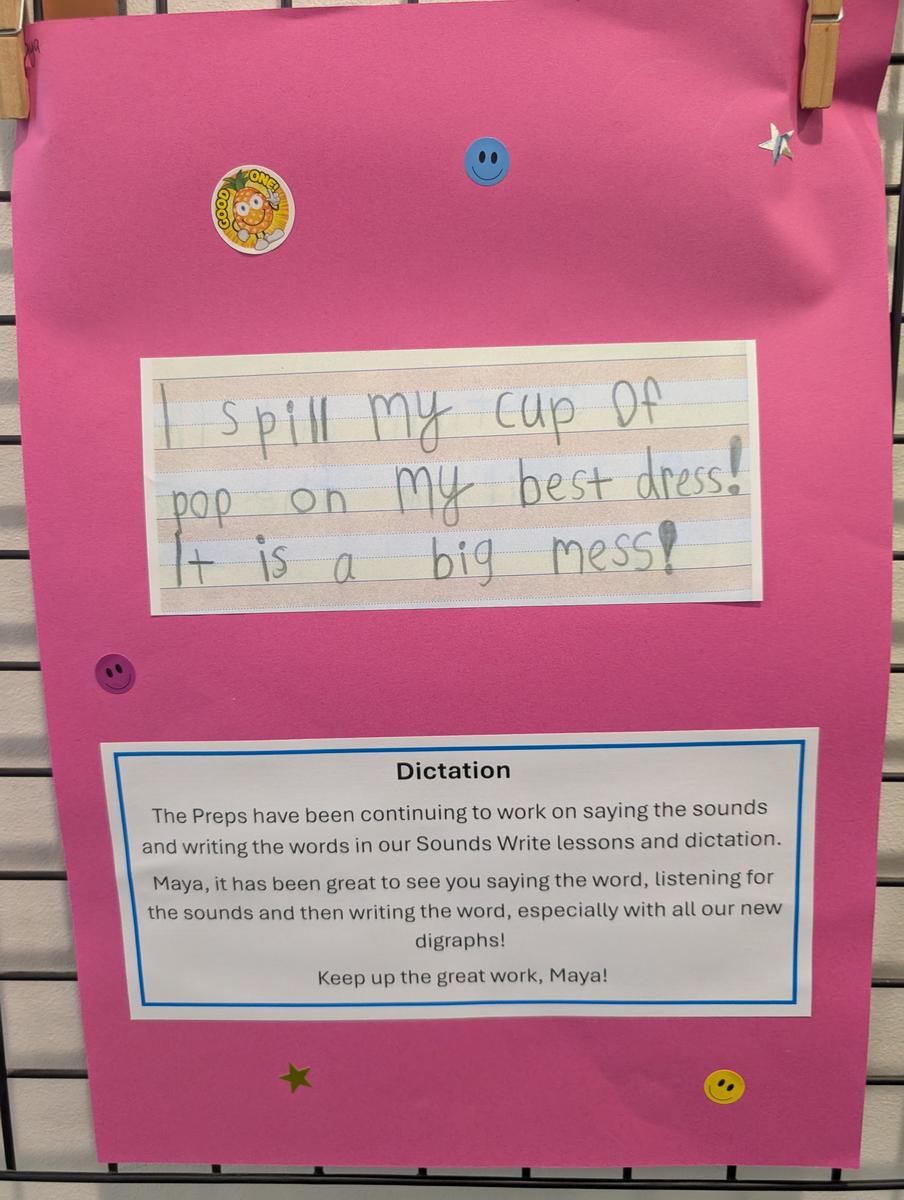 GOOD ONE!
I spill my cup Of
pop on my best dress!
It is a big mess!
Dictation
The Preps have been continuing to work on saying the sounds
and writing the words in our Sounds Write lessons and dictation.
Maya, it has been great to see you saying the word, listening for
the sounds and then writing the word, especially with all our new
digraphs!
Keep up the great work, Maya!